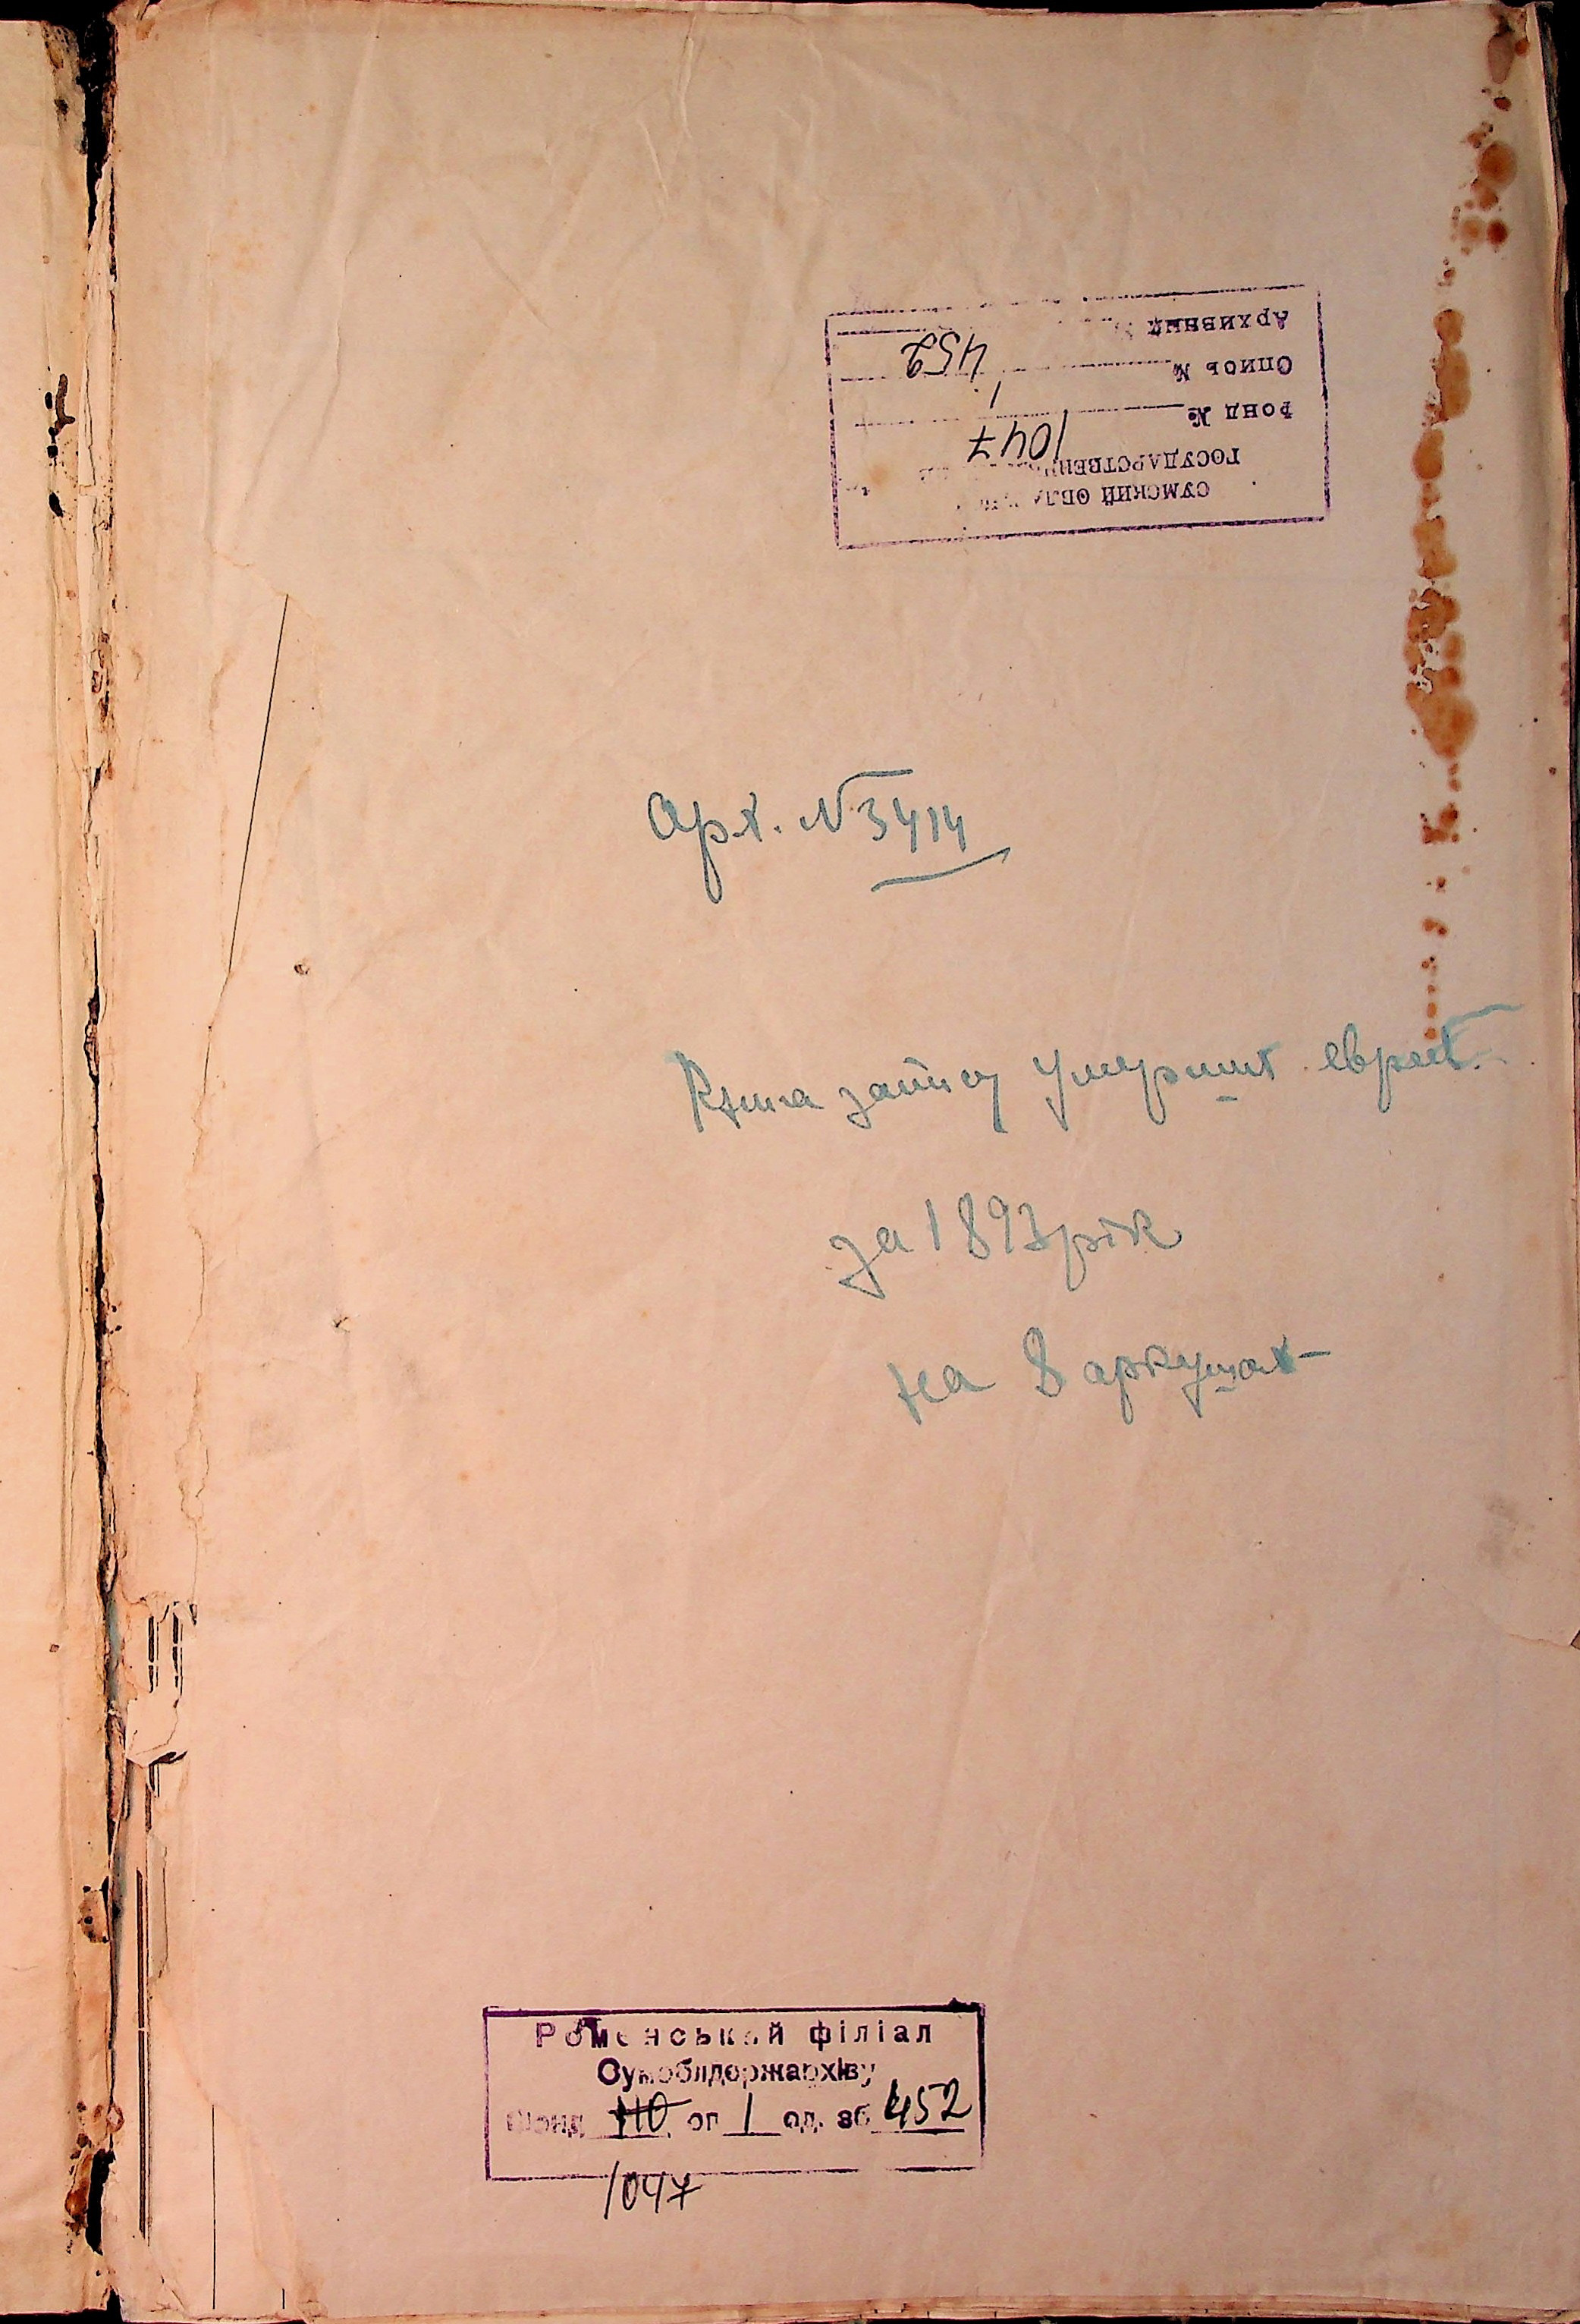 СУМСКИЙ ОБЛ
ГОСУДАРСТВЕН
Фонд № 1047
Опись № 1
Архивный 452
Арх. № 3414
Книга запису умерших евреїв
за 1893 рік
на 8 аркушах
Роменський філіал
Сумоблдержархіву
Фонд 110 оп 1 од. зб 452
1047